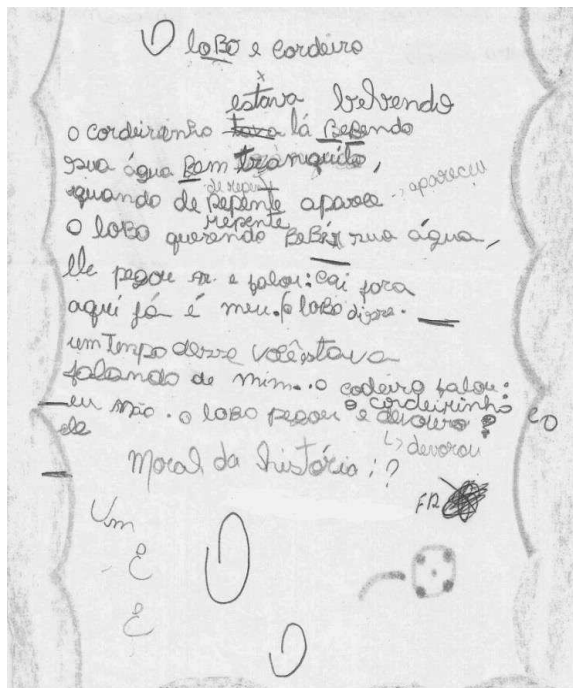 O loBo e cordeiro
estava belbendo
o cordeirinho tava lá BeBendo
sua água Bem tranquilo,
de repen
quando de Repente aparece apareceu
repente
o loBo querendo BeBer sua água,
ele pegou ar e falou: cai fora
aqui já é meu. o loBo disse.
um Tempo desse você estava
falando de mim. o codeiro falou:
eu não. o loBo pegou o cordeirinho
e devouro eo
ele
devorou
Moral da história: ?
FR
Um
E
E